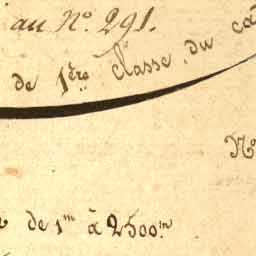 au N.º 291.
de 1ère Classe, du ca
N.º
de 1.m à 2500.m